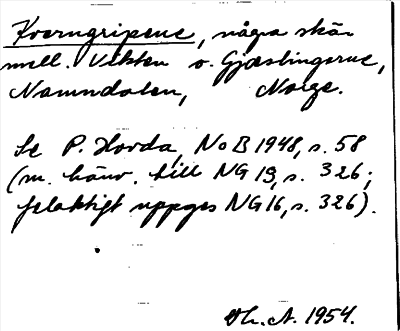 Kverngripene, några skär
mell. Vikten o. Gjæslingerne,
Namndalen, Norge.
Se P. Hovda, NoB 1948, s. 58
(m. hänv. till NG 19, s. 326;
felaktigt uppges NG 16, s. 326).
Th. A. 1954.